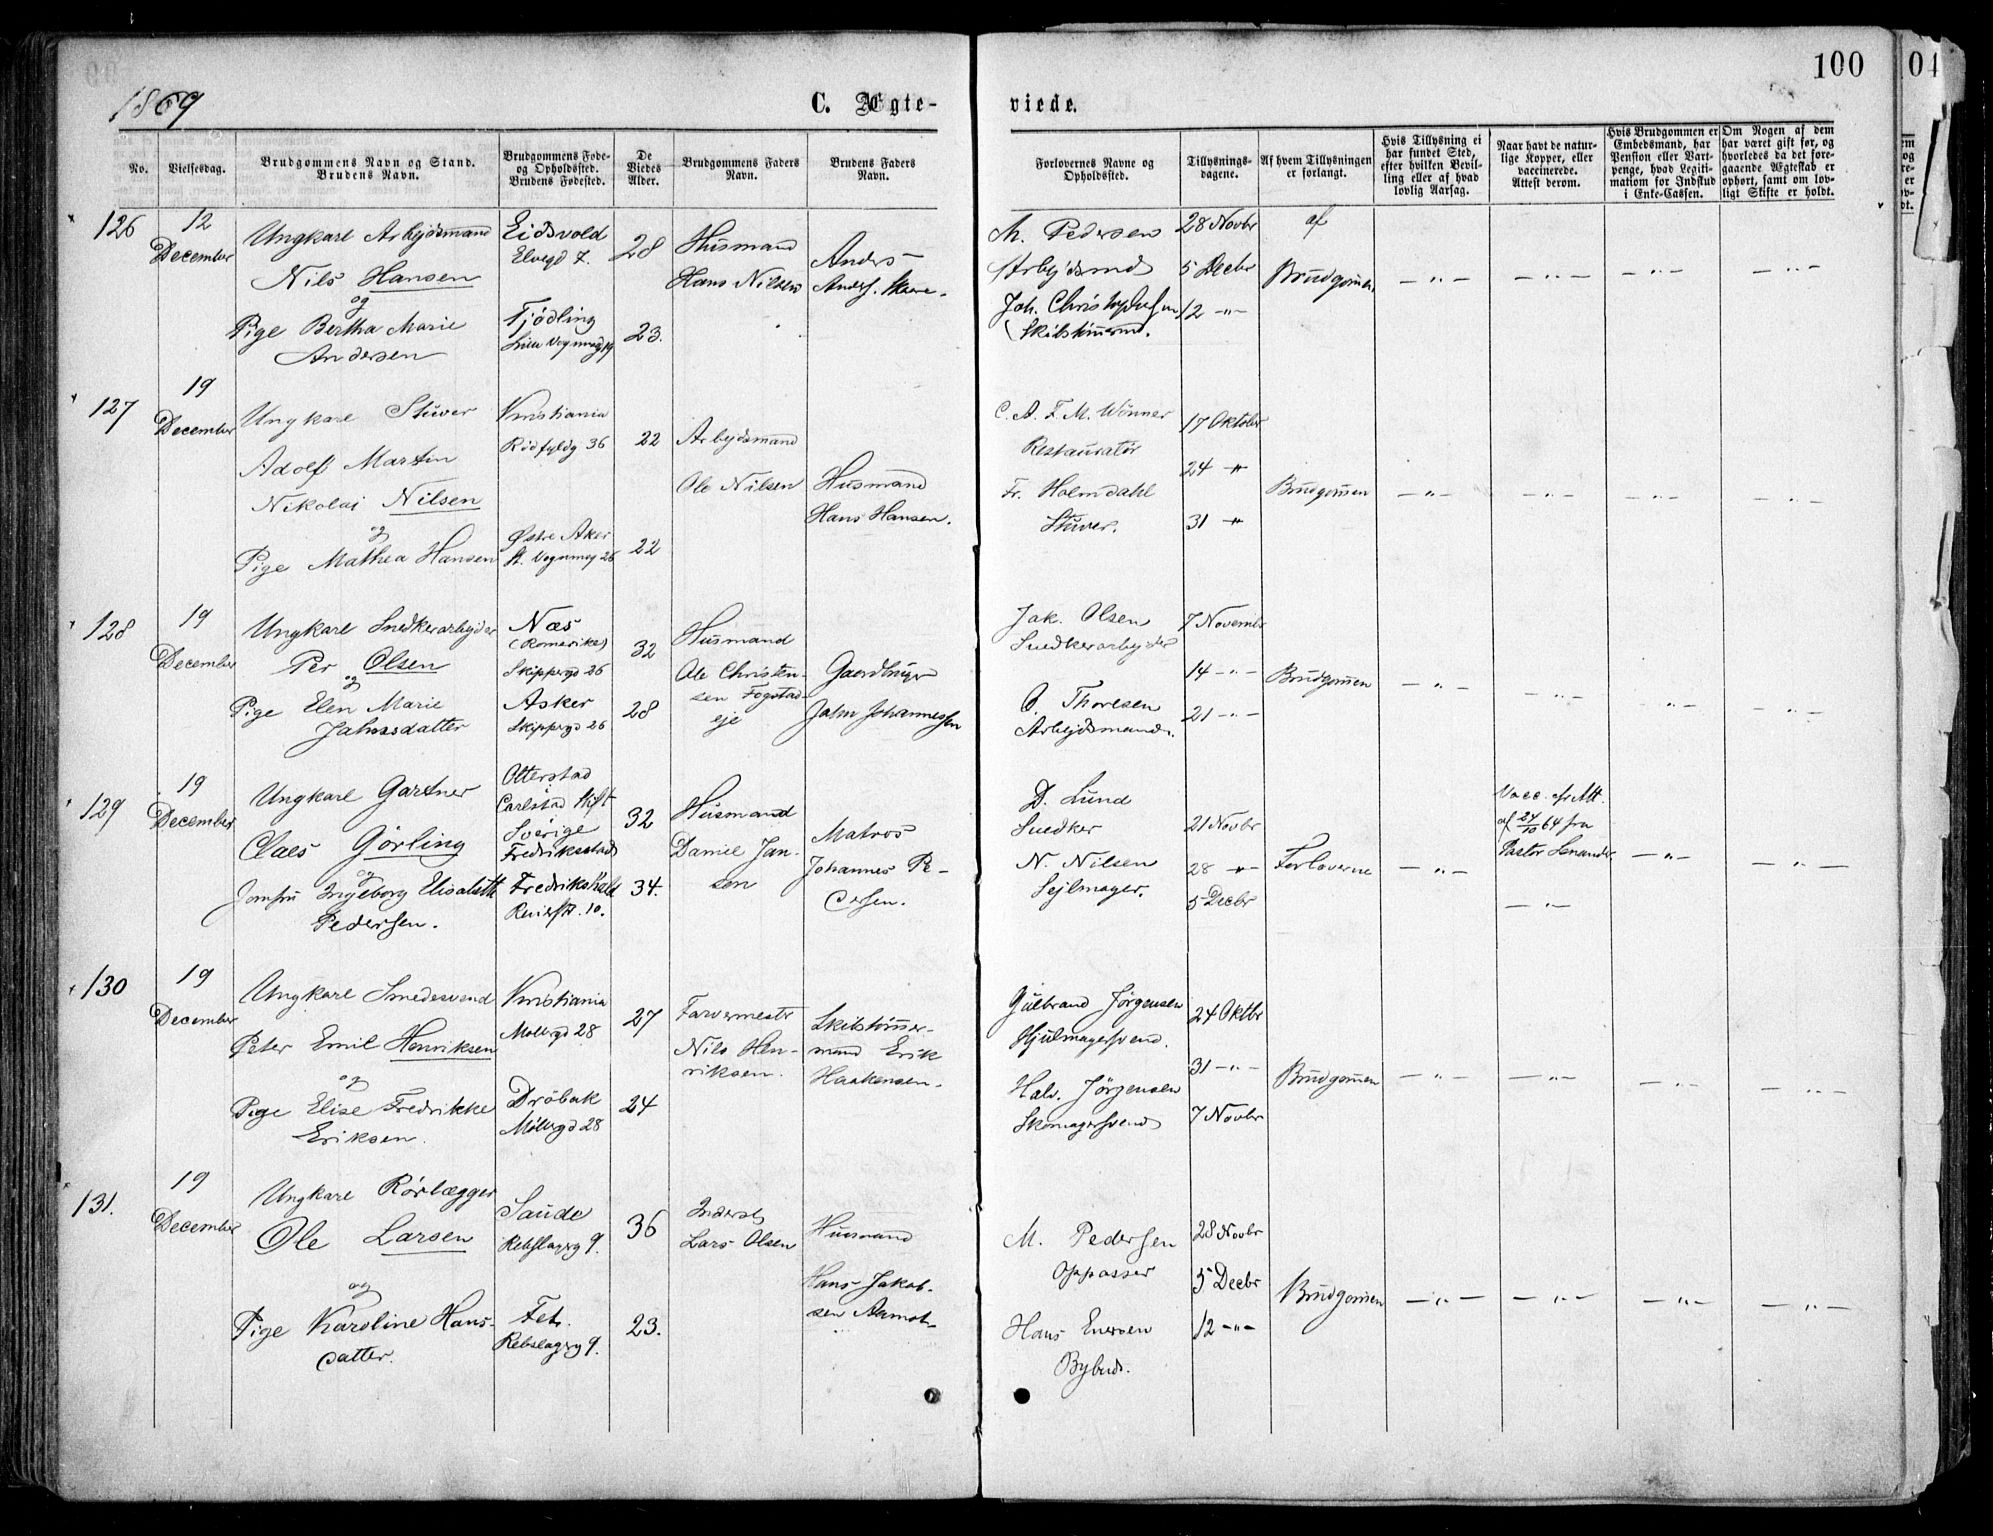 1869
C. Ægte-
viede.
100
No.
Vielsesdag.
Brudgommens Navn og Stand.
Brudens Navn.
Brudgommens Føde-
og Opholdssted.
Brudens Fødested.
De
Viedes
Alder.
Brudgommens Faders
Navn.
Brudens Faders
Navn.
Forlovernes Navne og
Opholdssted.
Tillysnings-
dagene.
Af hvem Tillysningen
er forlangt.
Hvis Tillysning ei
har fundet Sted,
efter hvilken Bevil-
ling eller af hvad
lovlig Aarsag.
Naar havt de natur-
lige Kopper, eller
vaccinerede.
Attest derom.
Hvis Brudgommen er
Embedsmand, har
Pension eller Vart-
penge, hvad Legiti-
mation for Indskud
i Enke-Cassen.
Om Nogen af dem
har været gift før, og
hvorledes da det fore-
gaaende Ægteskab er
ophørt, samt om lov-
ligt Skifte er holdt.
126
12
December
Ungkarl Arbejdsmand
Nils Hansen
og
Pige Bertha Marie
Andersen
Eidsvold
Elvegd 7.
28
Husmand
Hans Nilsen
Anders
Tjødling
23.
M. Pedersen
Arbejdsmd
Joh. Christophersen
28 Novbr
5 Decbr
12 -"-
af
Brudgommen
127
19
December
Ungkarl Stuver
Adolf Martin
Nikolai Nilsen
og
Pige Mathea Hansen
Kristiania
Rødfyldg 36
22
Arbejdsmand
Ole Nilsen
Husmand
Hans Hansen.
Østre Aker
St. Vognmsg 26
22
C. A. F. M. Wønner
Restauratør
Fr. Holmdahl
Stuver.
17 Oktober
24 -"-
31 -"-
Brudgommen
128
19
December
Ungkarl Snedkerarbejder
Per Olsen
og
Pige Elen Marie
Jahnsdatter
Næs
(Romerike)
Skipperg 26
32
Husmand
Ole Christen-
sen Fogstad-
eje
Gaardbruger
Jahn Johannessen
Asker
Skipperg 26
28
Jak. Olsen
Snedkerarbejder
O. Thoresen
Arbejdsmand.
7 Novembr
14 -"-
21 -"-
Brudgommen
129
19
December
Ungkarl Gartner
Claes Gørling
og
Jomfru Ingeborg Elisabeth
Pedersen.
Otterstad
Carlstad Stift
Sverige
Fredriksstad
32
Husmand
Daniel Jan-
sen
Matros
Johannes Pe-
dersen.
Fredrikshald
Revierstr. 10.
34.
D. Lund
Snedker
N. Nilsen
Sejlmager.
21 Novbr
28 -"-
5 Decbr
Forloverne
Vacc. efr Att.
af 24/10 64 fra
Pastor Lenander
130
19
December
Ungkarl Smedesvend
Peter Emil Henriksen
og
Pige Elise Fredrikke
Eriksen.
Kristiania
Møllergd 28
27
Farvermester
Nils Hen-
riksen.
Skibstømmer-
mand Erik
Haakensen.
Drøbak
Møllergd 28
24
Gulbrand Jørgensen
Hjulmagersvend.
Halv. Jørgensen
Skomagersvend
24 Oktbr
31 -"-
7 Novbr
Brudgommen
131.
19
December
Ungkarl Rørlægger
Ole Larsen
og
Pige Karoline Hans-
datter.
Saude
Rebslagerg 9.
36
Inderst
Lars Olsen
Husmand
Hans Jakob-
sen Aamot
Fet.
Rebslagerg 9.
23.
M. Pedersen
Oppasser
Hans Enersen
Bybud.
28 Novbr
5 Decbr
12 -"-
Brudgommen